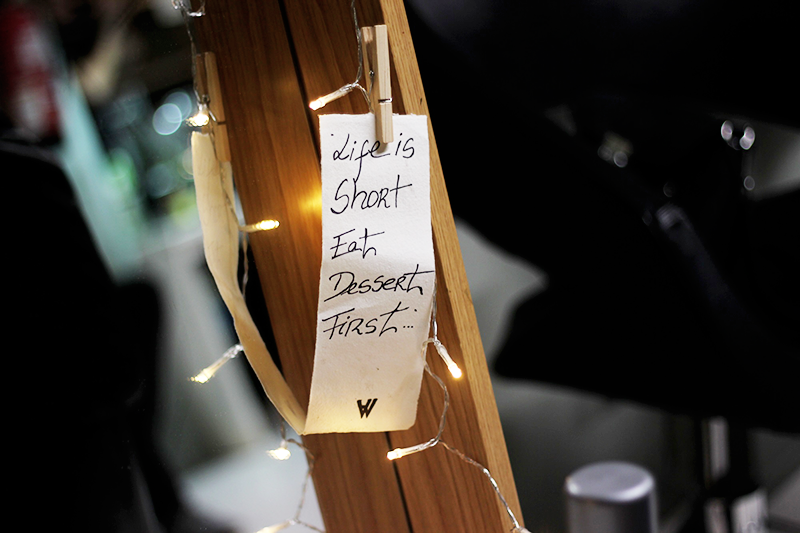 Life is
Short
Eat
Dessert
First...
W